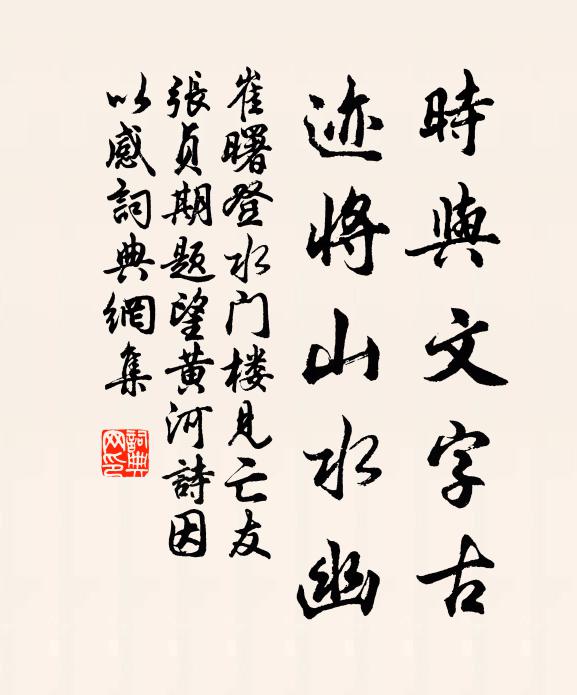 時與文字古
迹將山水幽
崔曙登水门楼見亡友
張貞期題望黄河詩因
以感詞典網集
詞典网印